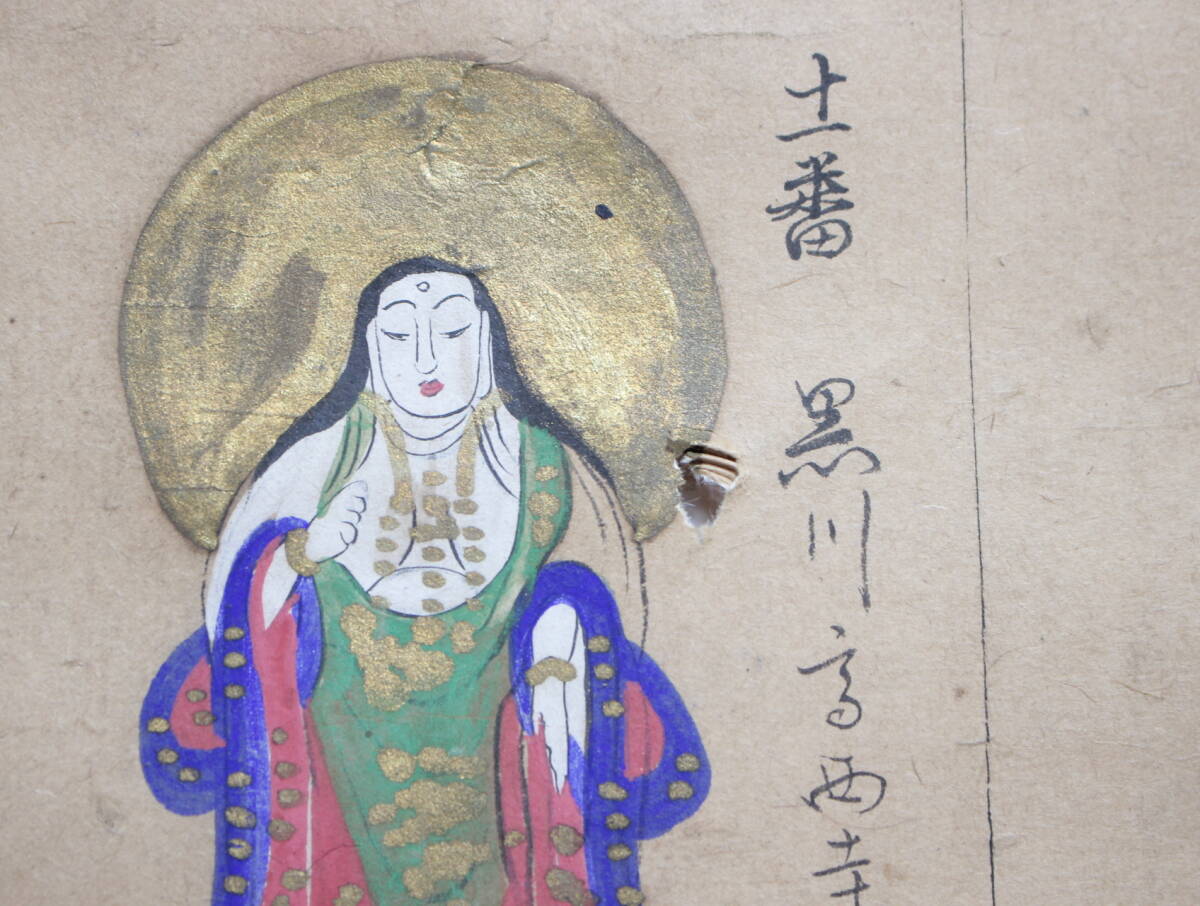 十一番　黒川高西寺